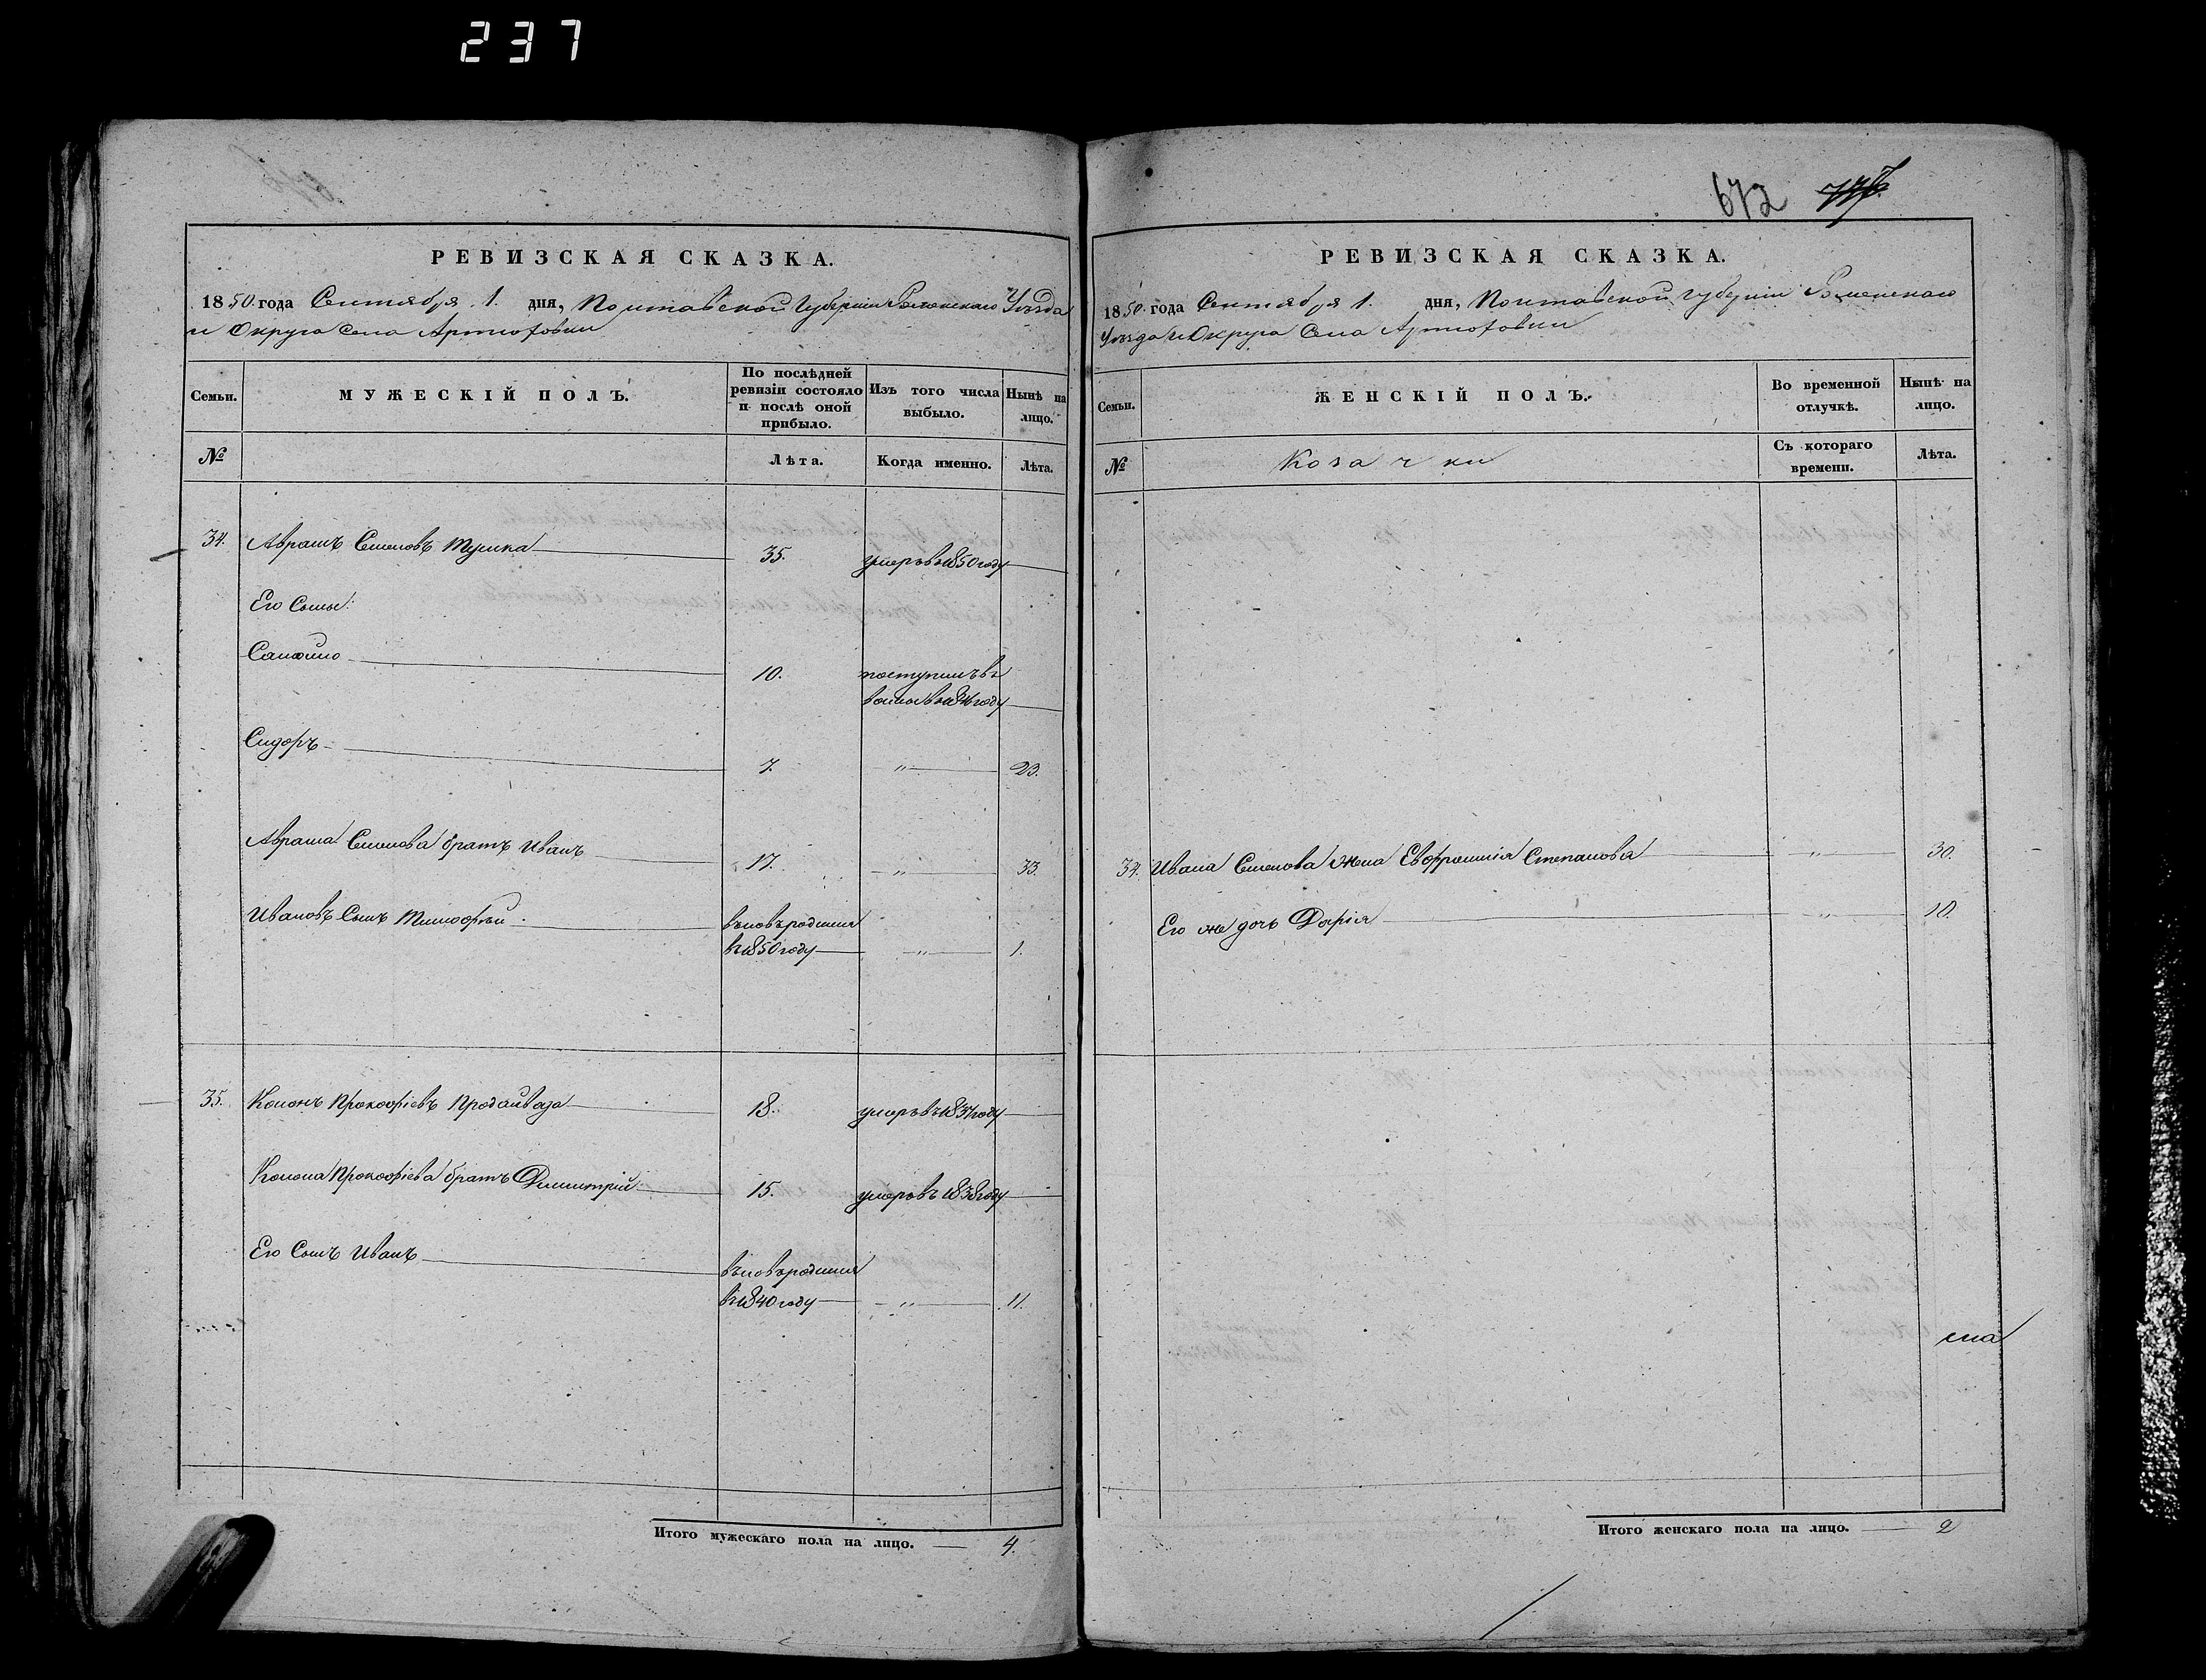 237
РЕВИЗСКАЯ СКАЗКА.
1850. года Сентября 1. дня, Полтавской Губернии Роменскаго Уѣзда
и Округа Села Артюховки
Семьи.
МУЖЕСКІЙ ПОЛЪ.
По послѣдней ревизіи состояло и послѣ оной прибыло.
Изъ того числа выбыло.
Нынѣ на лицо.
№
Лѣта.
Когда именно.
Лѣта.
34. Аврамъ Семеновъ 35. умеръ въ 1850 году
Его Сыны:
10. поступилъ въ
году
Сидоръ 7. " 23.
Аврама Семенова братъ Иванъ 17. " 33.
Ивановъ Сынъ Тимофѣй вновьродился
въ 1850 году " 1.
35. Кононъ Прокофіевъ Продайвода 18. умеръ въ 1837 году
Конона Прокофіева братъ Димитрій 15. умеръ въ 1838 году
Его Сынъ Иванъ вновьродился
въ 1840 году " 11.
Итого мужескаго пола на лицо. 4.
672
РЕВИЗСКАЯ СКАЗКА.
1850. года Сентября 1. дня, Полтавской Губерніи Роменскаго
Уѣзда и Округа Села Артюховки
Семьи.
ЖЕНСКІЙ ПОЛЪ.
Во временной отлучкѣ.
Нынѣ на лицо.
№
Козачки
Съ котораго времени.
Лѣта.
34. Ивана Семенова жена Евфросинія Степанова " 30.
Его же дочь Дарія " 10.
Итого женскаго пола на лицо. 2